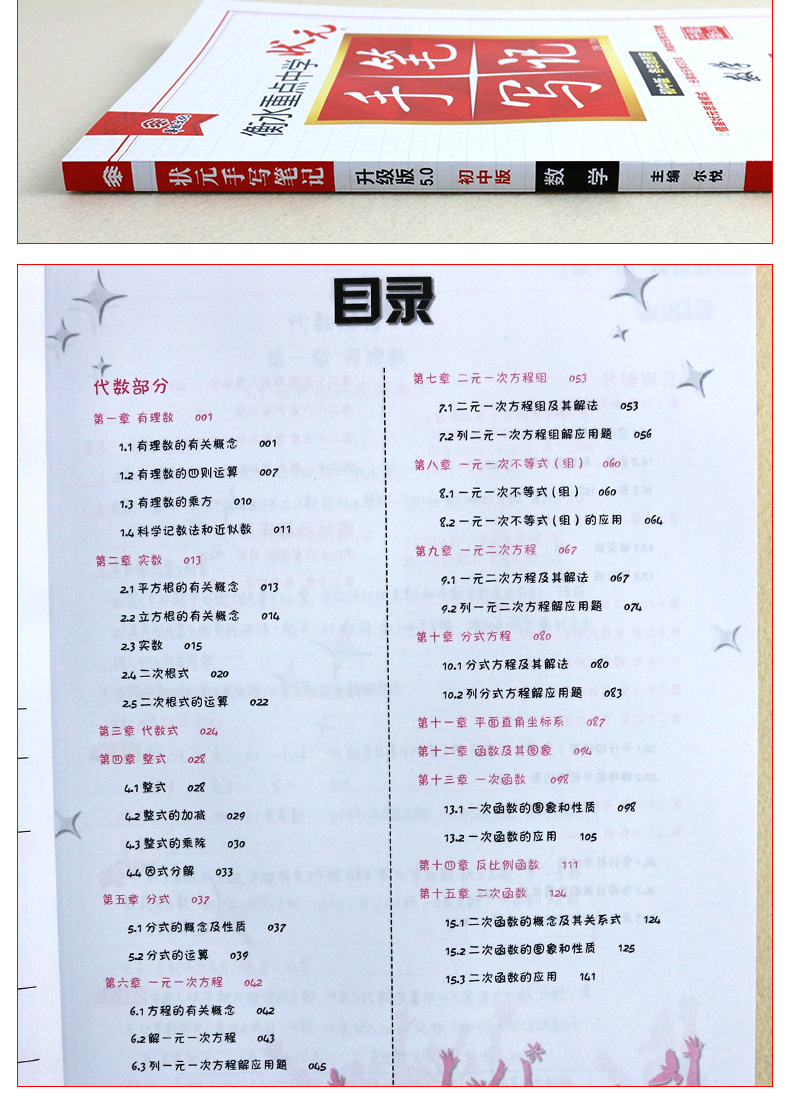 衡水重点中学状元
手写笔记
状元手写笔记 升级版5.0 初中版 数学 主编 尔悦
目录
代数部分
第一章 有理数 001
1.1 有理数的有关概念 001
1.2 有理数的四则运算 007
1.3 有理数的乘方 010
1.4 科学记数法和近似数 011
第二章 实数 013
2.1 平方根的有关概念 013
2.2 立方根的有关概念 014
2.3 实数 015
2.4 二次根式 020
2.5 二次根式的运算 022
第三章 代数式 024
第四章 整式 028
4.1 整式 028
4.2 整式的加减 029
4.3 整式的乘除 030
4.4 因式分解 033
第五章 分式 037
5.1 分式的概念及性质 037
5.2 分式的运算 039
第六章 一元一次方程 042
6.1 方程的有关概念 042
6.2 解一元一次方程 043
6.3 列一元一次方程解应用题 045
第七章 二元一次方程组 053
7.1 二元一次方程组及其解法 053
7.2 列二元一次方程组解应用题 056
第八章 一元一次不等式(组) 060
8.1 一元一次不等式(组) 060
8.2 一元一次不等式(组)的应用 064
第九章 一元二次方程 067
9.1 一元二次方程及其解法 067
9.2 列一元二次方程解应用题 074
第十章 分式方程 080
10.1 分式方程及其解法 080
10.2 列分式方程解应用题 083
第十一章 平面直角坐标系 087
第十二章 函数及其图象 094
第十三章 一次函数 098
13.1 一次函数的图象和性质 098
13.2 一次函数的应用 105
第十四章 反比例函数 111
第十五章 二次函数 124
15.1 二次函数的概念及其关系式 124
15.2 二次函数的图象和性质 125
15.3 二次函数的应用 141